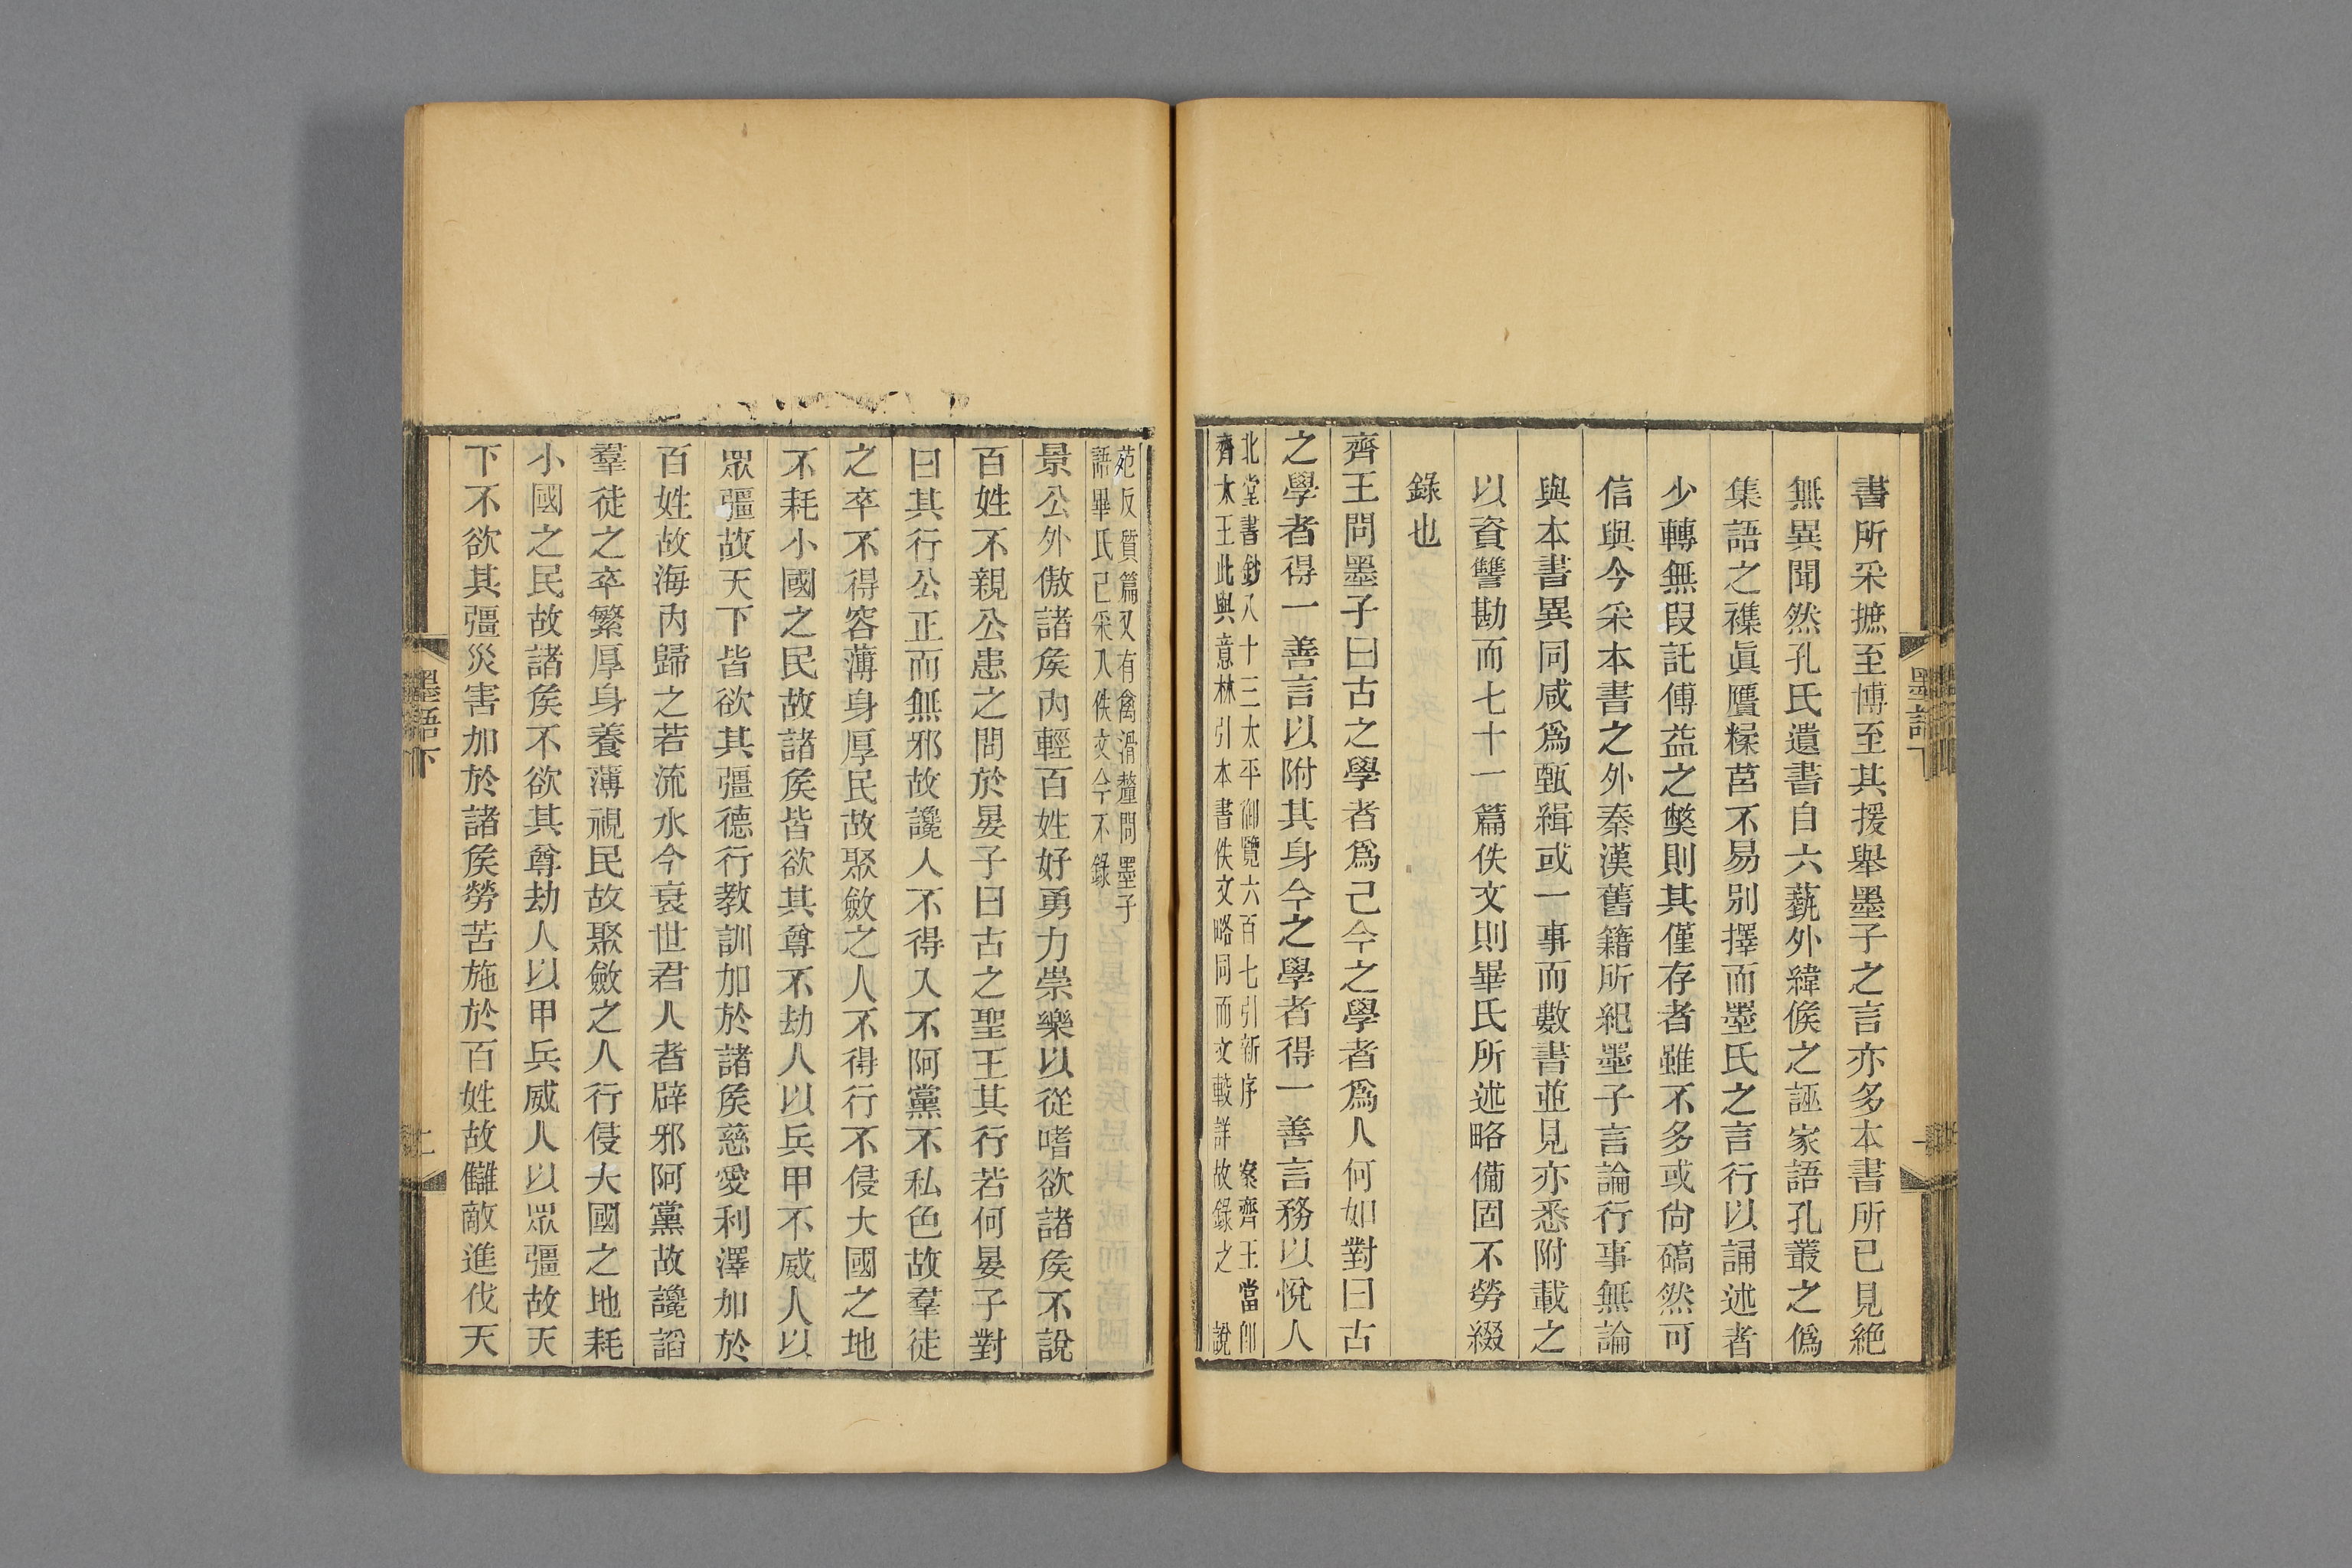 書所采摭至博至其援舉墨子之言亦多本書所已見絕
無異聞然孔氏遺書自六蓺外緯候之誣家語孔叢之僞
集語之襍眞贗糅莒不易別擇而墨氏之言行以誦述者
少轉無叚託傅益之獘則其僅存者雖不多或尙碻然可
信與今采本書之外秦漢舊籍所紀墨子言論行事無論
與本書異同咸爲甄緝或一事而數書並見亦悉附載之
以資讐勘而七十一篇佚文則畢氏所述略備固不勞綴
錄也
齊王問墨子曰古之學者爲己今之學者爲人何如對曰古
之學者得一善言以附其身今之學者得一善言務以悅人
北堂書鈔八十三太平御覽六百七引新序 案齊王當卽
齊太王此與意林引本書佚文略同而文較詳故錄之 說
墨語下
苑反質篇又有禽滑釐問墨子
語畢氏已采入佚文今不錄
景公外傲諸矦內輕百姓好勇力崇樂以從嗜欲諸矦不說
百姓不親公患之問於晏子曰古之聖王其行若何晏子對
曰其行公正而無邪故讒人不得入不阿黨不私色故羣徒
之卒不得容薄身厚民故聚斂之人不得行不侵大國之地
不耗小國之民故諸矦皆欲其尊不劫人以兵甲不威人以
眾彊故天下皆欲其彊德行教訓加於諸矦慈愛利澤加於
百姓故海內歸之若流水今衰世君人者辟邪阿黨故讒諂
羣徒之卒繁厚身養薄視民故聚斂之人行侵大國之地耗
小國之民故諸矦不欲其尊劫人以甲兵威人以眾彊故天
下不欲其彊災害加於諸矦勞苦施於百姓故讎敵進伐天
墨語下